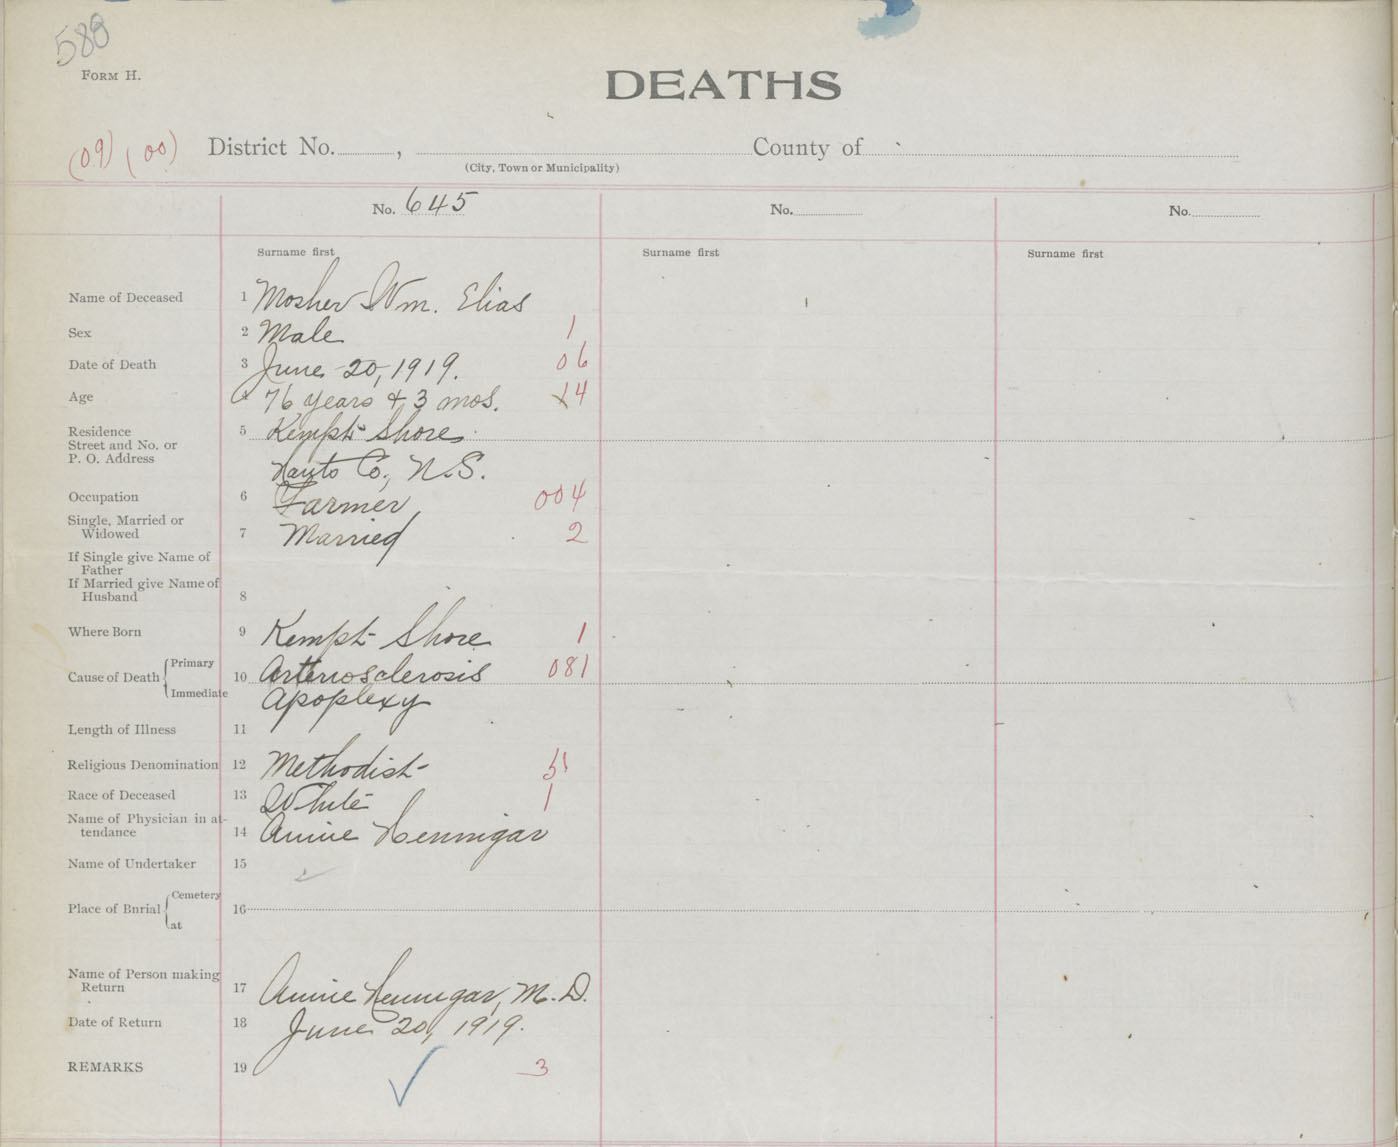 588
FORM H.
DEATHS
(09) (00) District No. , County of
(City, Town or Municipality)
No. 645 No. No.
Surname first Surname first Surname first
Name of Deceased 1 Mosher Wm. Elias
Sex 2 Male 1
Date of Death 3 June 20, 1919. 06
Age 76 years & 3 mos. 14
Residence 5 Kempt Shore
Street and No. or
P. O. Address Hants Co., N.S.
Occupation 6 Farmer 004
Single, Married or
Widowed 7 Married 2
If Single give Name of
Father
If Married give Name of
Husband 8
Where Born 9 Kempt Shore 1
Cause of Death Primary 10 Arteriosclerosis 081
Immediate Apoplexy
Length of Illness 11
Religious Denomination 12 Methodist
Race of Deceased 13 White 1
Name of Physician in at-
tendance 14 Annie Hennigar
Name of Undertaker 15
Place of Burial Cemetery 16
at
Name of Person making
Return 17 Annie Hennigar, M.D.
Date of Return 18 June 20, 1919.
REMARKS 19 3